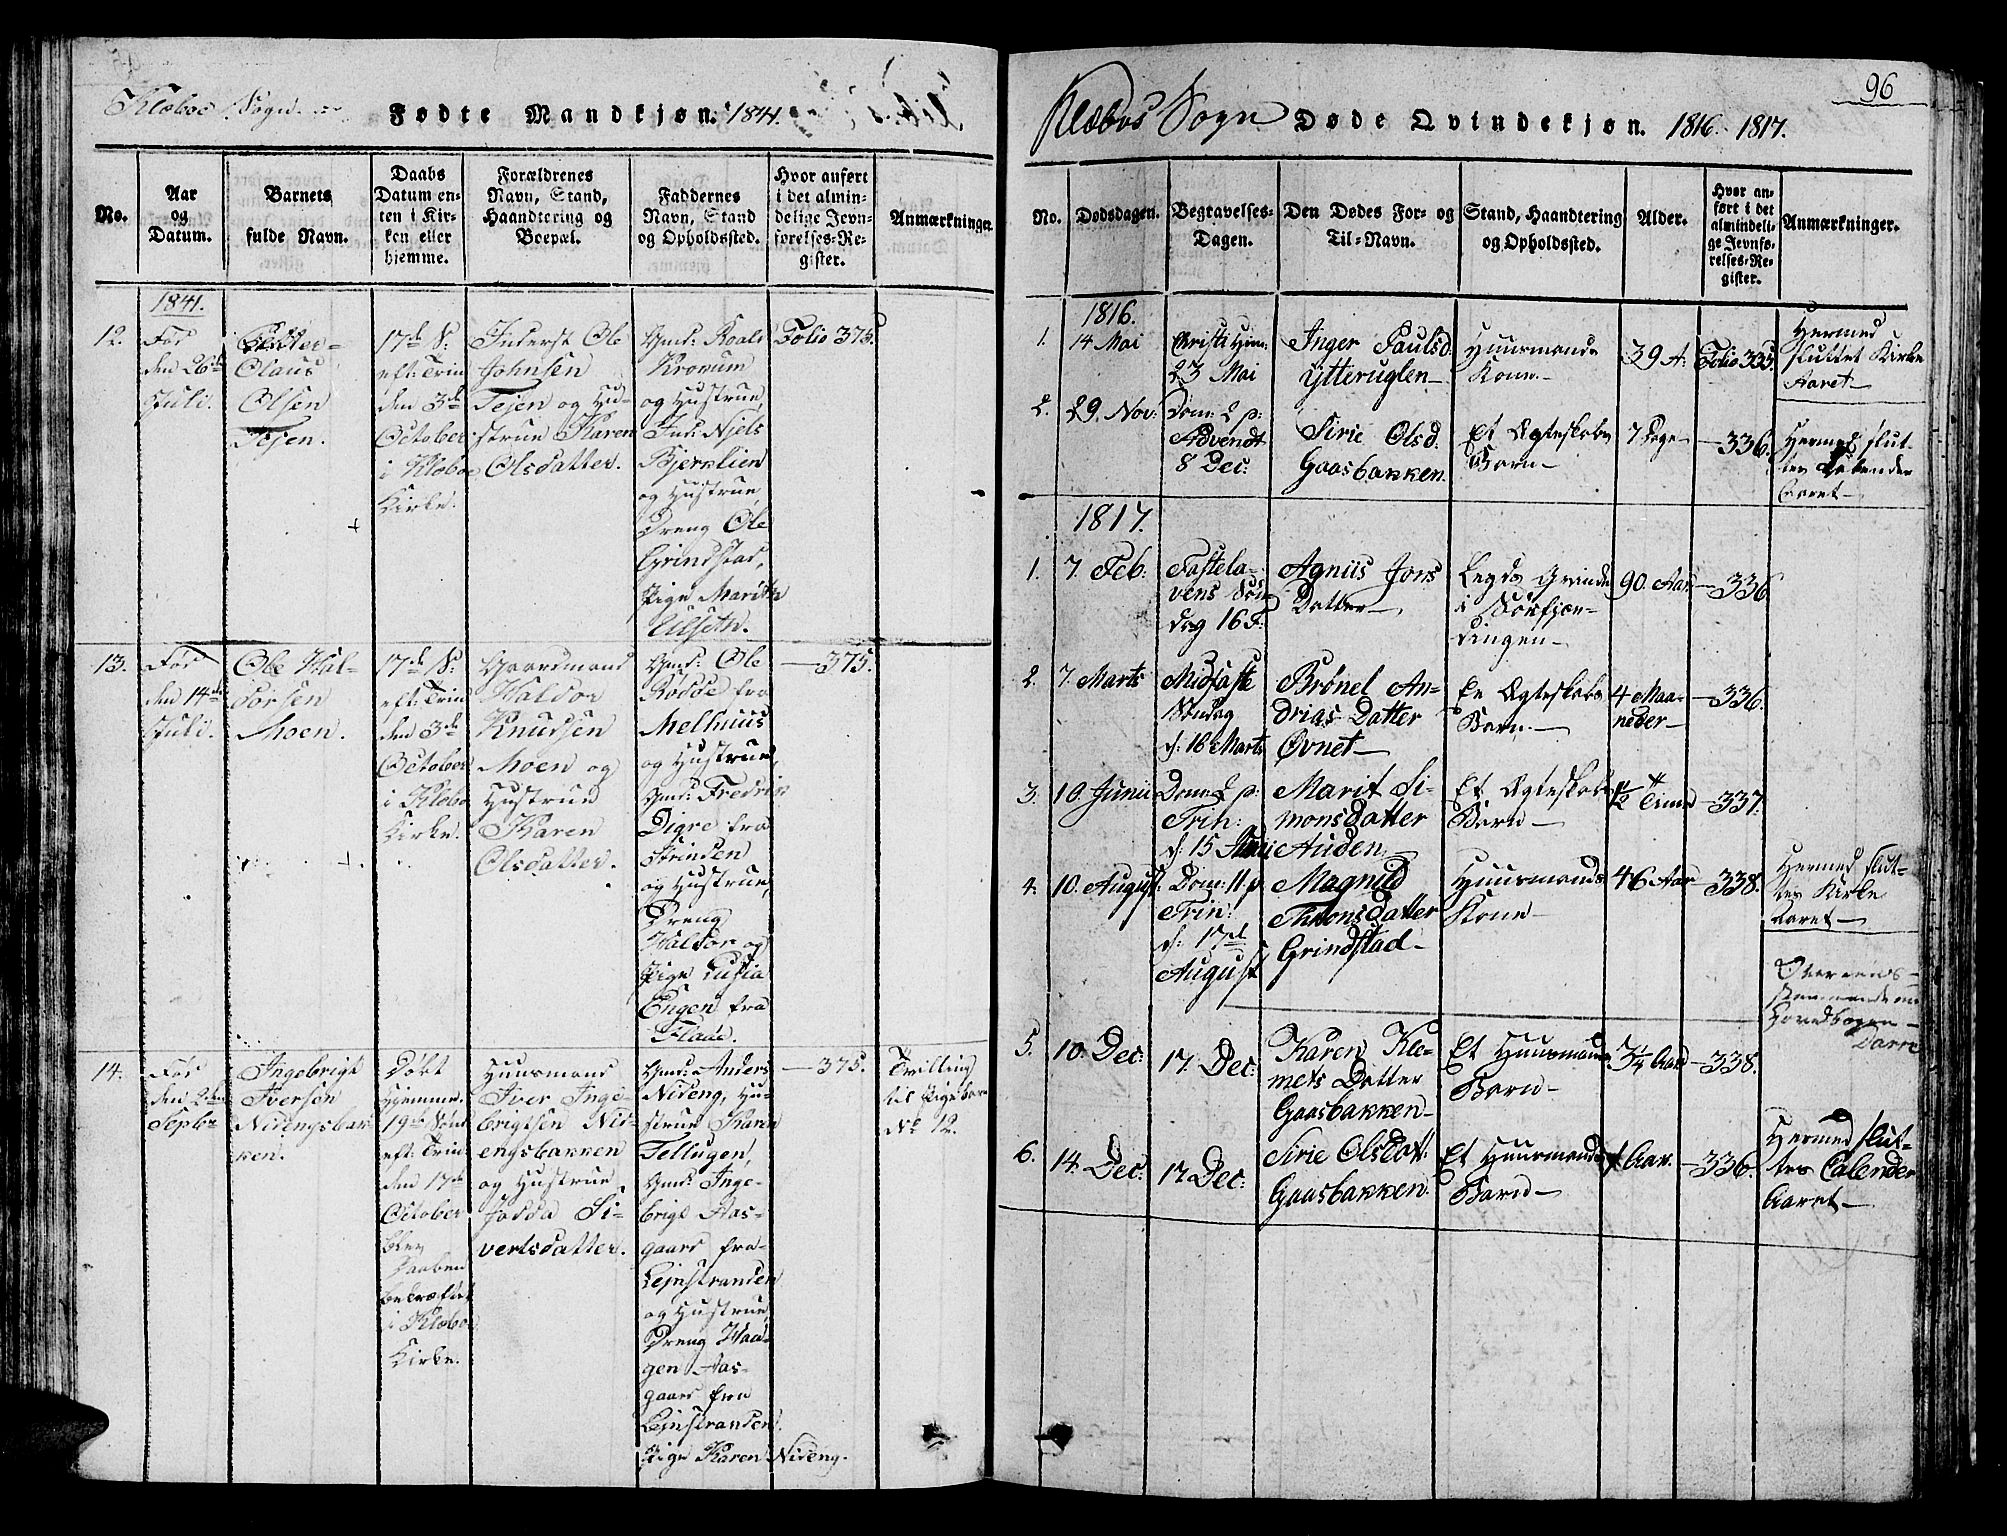 Klæboe Sogn
Fødte Mandkjøn. 1841.
No.
Aar
og
Datum.
Barnets
fulde Navn.
Daabs
Datum en-
ten i Kir-
ken eller
hjemme.
Forældrenes
Navn, Stand,
Haandtering og
Boepæl.
Faddernes
Navn, Stand
og Opholdssted.
Hvor anført
i det almin-
delige Jevn-
førelses-Re-
gister.
Anmærkninger.
1841.
12.
Fød
den 26de
Juli.
Peter
Olaus
Olsen
Tejen.
17de S:
eft: Trin
den 3de
October
i Klæboe
Kirke.
Inderst Ole
Johnsen
Tejen og Hu-
strue Karen
Olsdatter.
Gmd: Roald
Krokum
og Hustrue,
Ind: Njels
Bjerklien
og Hustrue,
Dreng Ole
Grindstad,
Pige Marith
Ulseth.
Folio 375.
13.
Fød
den 14de
Juli.
Ole Hal-
dorsen
Moen.
17de S:
eft: Trin
den 3de
October
i Klæbo
Kirke.
Gaardmand
Haldor
Knudsen
Moen og
Hustrue
Karen
Olsdatter.
Gmd: Ole
Rødde fra
Melhuus
og Hustrue,
Gmd: Fredrik
Digre fra
Strinden
og Hustrue,
Dreng
Haldor og
Pige Lusia
Engen fra
Flaae.
— 375.
14.
Fød
den 2den
Sepbr
Ingebrigt
Iversen
Nidengsbak-
ken.
Døbt
hjemme.
19de Sønd
eft: Trin:
den 17de
October
blev
Daaben
bekræftet
i Klæboe
Kirke.
Huusmand
Iver Inge-
brigtsen Nid-
engsbakken
og Hustrue
Jodda Si-
vertsdatter.
Gmd: Anders
Nideng, Hu-
strue Karen
Tellugen,
Gmd: Inge-
brigt Aas-
gaard fra
Lejnstranden
og Hustrue,
Dreng Haa-
gen Aas-
gaard fra
Lejnstranden
Pige Karen Nideng.
— 375.
Tvilling
til Pigebarn
No 12.
96
Klæboe Sogn Døde Qvindekjøn. 1816. 1817.
No.
Dødsdagen.
Begravelses-
Dagen.
Den Dødes For- og
Til-Navn.
Stand, Haandtering
og Opholdssted.
Alder.
Hvor an-
ført i det
almindeli-
ge Jevnfø-
relses-Re-
gister.
Anmærkninger.
1816.
1.
14 Mai
Christi Him:
23 Mai
Inger Paulsd.
Ytteruglen —
Huusmands
Kone. —
39 A.
Folio 335.
Hermed
sluttet Kirke
Aaret —
2.
29. Nov:
Dom: 2 p:
Advendt
8 Dec:
Sirie Olsd.
Gaasbakken.
Et Ægteskabs
Barn —
7 Dage
— 336.
Hermed slut-
tes Calender
Aaret —
1817.
1.
7. Feb:
Fastela-
vens Søn-
dag 16 F.
Agnus Jons
Datter —
Legds Qvinde
i Sørfjæn-
dingen —
90 Aar
— 336
2.
7. Marts
Midfaste
Søndag
d: 16 Marts
Brønel An-
drias Datter
Øvnet —
En Ægteskabs
Barn. —
4 Maa-
neder —
— 336.
3.
10. Junii
Dom: 2 p:
Trin:
d: 15 Junii
Marit Si-
monsdatter
Auden. —
Et Ægteskabs
Barn —
1/2 Time
— 337.
4.
10. August:
Dom: 11 p:
Trin:
d: 17de
August
Magnild
Thronsdatter
Grindstad —
Huusmands
Kone —
46 Aar
— 338.
Hermed slut-
tes Kirke
Aaret —
Overeens-
stemmende m
Hovedbogen —
Darre
5.
10. Dec:
17. Dec:
Karen Kle-
mets Datter
Gaasbakken —
Et Huusmands
Barn —
3/4 Aar
— 338.
6.
14. Dec:
17 Dec:
Sirie Olsdat:
Gaasbakken.
Et Huusmands
Barn —
1 Aar.
— 336.
Hermed slut-
tes Calender
Aaret —